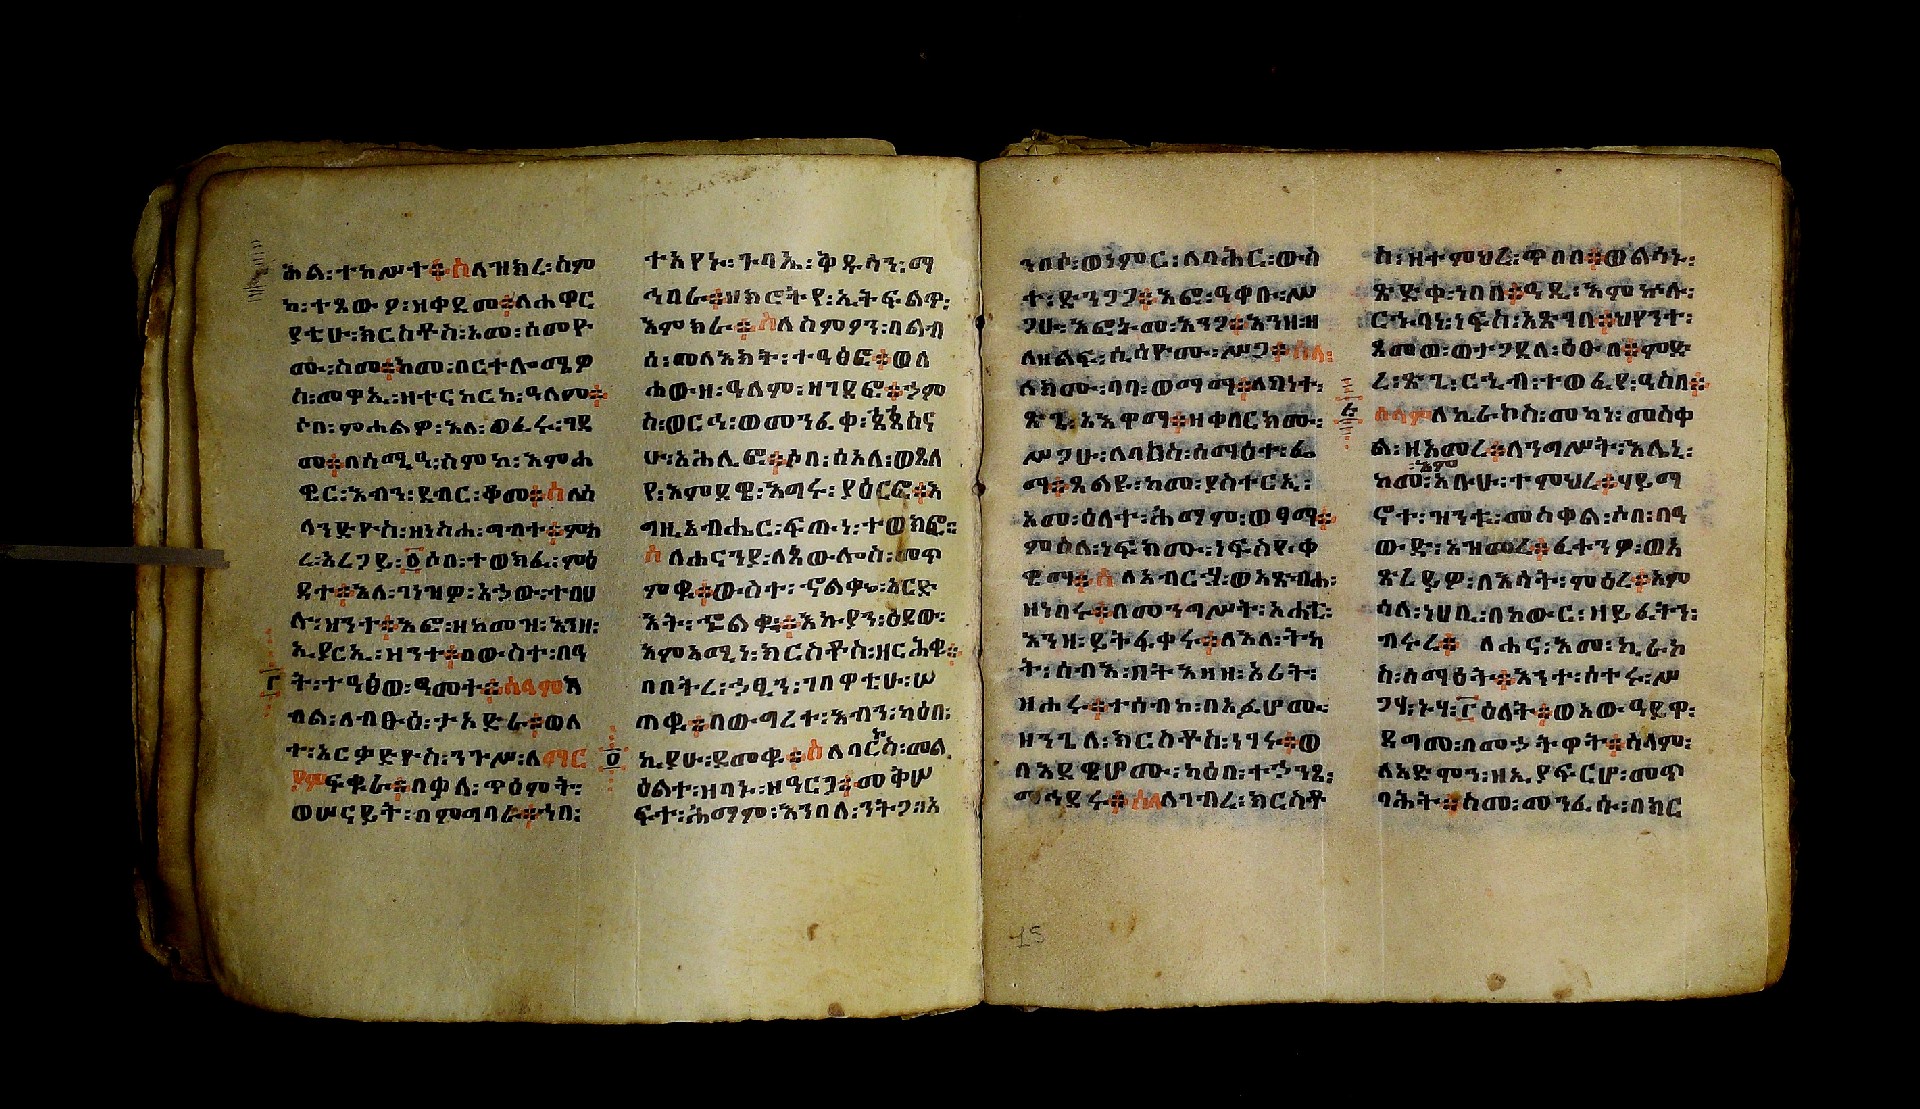 ሕል፡ተከሥተ፨ስለዝክረ፡ስም
ከ፡ተጸውዖ፡ዘቀደመ፨ለሐዋር
ያቲሁ፡ክርስቶስ፡አመ፡ሰመዮ
ሙ፡ስመ፨ከመ፡በርተሎሜዎ
ስ፡መዋኢ፡ዘተናከርከ፡ዓለመ፨
ሶበ፡ምሐልዎ፡እለ፡ወፈሩ፡ገደ
መ፨በሰሚዓ፡ስምከ፡እምሐ
ቅር፡እብን፡ደብር፡ቆመ፨ሰለስ
ላንድዮስ፡ዘነስሐ፡ግብተ፨ምክ
ረ፡አረጋይ፡ሶበ፡ተወክፈ፡ምዕ
ዳተ፨እለ፡ገነዝዎ፡እኃው፡ተብህ
ሉ፡ዘንተ፨እፎ፡ዘከመዝ፡እንዘ፡
ኢያርኢ፡ዝንተ፨በውስተ፡በዓ
ት፡ተዓፅወ፡ዓመት፨ሰላምእ
ብል፡ለብፁዕ፡ታእድራ፨ወለ
ተ፡አርቃድዮስ፡ንጉሥ፡ለማር
ያምፍቁራ፨በቃለ፡ጥዕምት፡
ወሠናይት፡በምግባራ፨ነበ፡
ተአየኑ፡ጉባኤ፡ቅዱሳን፡ማ
ኅበራ፨ዘክሮትየ፡ኢትፍልጥ፡
እምክራ፨ስለስምዖን፡በልብ
ሰ፡መለአክት፡ተዓፅፎ፨ወለ
ሐውዘ፡ዓለም፡ዘገደፎ፨ኃም
ስ፡ወርኅ፡ወመንፈቀ፡ጼጼስና
ሁ፡አሕሊፎ፨ሶበ፡ሰአለ፡ወጸለ
የ፡እምደዌ፡እግሩ፡ያዕርፎ፨እ
ግዚአብሔር፡ፍጡነ፡ተወክፎ፨
ስለሐናንያ፡ለጳውሎስ፡መጥ
ምቁ፨ውስተ፡ኖልቍ፡አርድ
እት፡ኍልቁ፨እኩያን፡ዕደው፡
እምአሚነ፡ክርስቶስ፡ዘርሕቁ፨
በበትረ፡ኃፂን፡ገበዋቲሁ፡ሠ
ጠቁ፨በውግረተ፡እብን፡ካዕበ፡
ኢያሁ፡ደመቁ፨ስለባርኮስ፡መል
ዕልተ፡ዘባኑ፡ዘዓርጋ፨መቅሠ
ፍተ፡ሕማም፡እንበለ፡ንትጋ፡በእ
ንበሶ፡ወነምር፡ለባሕር፡ውስ
ተ፡ድንጋጋ፨እፎ፡ዓቀቡ፡ሥ
ጋሁ፡እፎትመ፡እንጋ፨እንዘ፡ዘ
ለዘልፍ፡ሲሳዮሙ፡ሥጋ፨ሰለ፡
ለክሙ፡ባባ፡ወማማ፨ለክነተ፡
ጽጌ፡አእዋማ፨ዘቀበርክሙ፡
ሥጋሁ፡ለባኮስ፡ሰማዕተ፡ፌ
ማ፨ጸልዩ፡ከመ፡ያስተርኢ፡
እመ፡ዕለተ፡ሕማም፡ወፃማ፨
ምዕለ፡ነፍክሙ፡ነፍስየ፡ቀ
ዊማ፨ስለአብርሃ፡ወአጽብሐ፡
ዘነበሩ፨በመንግሥት፡አሐቲ፡
እንዘ፡ይትፋቀሩ፨ለእለ፡ትካ
ት፡ሰብእ፡ክት፡አዘዘ፡ኦሪት፡
ዘሐሩ፨ተሰብከ፡በአፈሆሙ፡
ዘንጌለ፡ክርስቶስ፡ነገሩ፨ወ
በእደዊሆሙ፡ካዕበ፡ተኃንጸ፡
መኅደሩ፨ሰለለገብረ፡ክርስቶ
ስ፡ዘተምህረ፡ጥበበ፨ወልሳኑ፡
ጽድቀ፡ነበበ፨ዓዲ፡እምኵሉ፡
ርኁባነ፡ነፍስ፡አጽገበ፨ህየንተ፡
ጸመወ፡ወታጋደለ፡ዕፁበ፨ምድ
ረ፡ጽጌ፡ርኂብ፡ተወፈየ፡ዓስበ፨
ሰላምለኪራኮስ፡መካነ፡መስቀ
ል፡ዘአመረ፨ለንግሥት፡እሌኒ፡
እም
ከመ፡አቡሁ፡ተምህረ፨ሃይማ
ኖተ፡ዝንቱ፡መስቀል፡ሶበ፡በዓ
ውድ፡አዝመረ፨ፈተንዎ፡ወአ
ጽረይዎ፡ለእሳት፡ምዕረ፨አም
ሰለ፡ነሀቢ፡በከውር፡ዘይፈትን፡
ብሩረ፨ለሐና፡እመ፡ኪራኮ
ስ፡ሰማዕት፨እንተ፡ሰተሩ፡ሥ
ጋሃ፡ኑሃ፡ዕለት፨ወእው፡ዓይዋ፡
ደግመ፡በመኃትዋት፨ሰላም፡
ለእድሞን፡ዘኢያፍርሆ፡መጥ
ባሕት፨ስመ፡መንፈሱ፡በክር
15